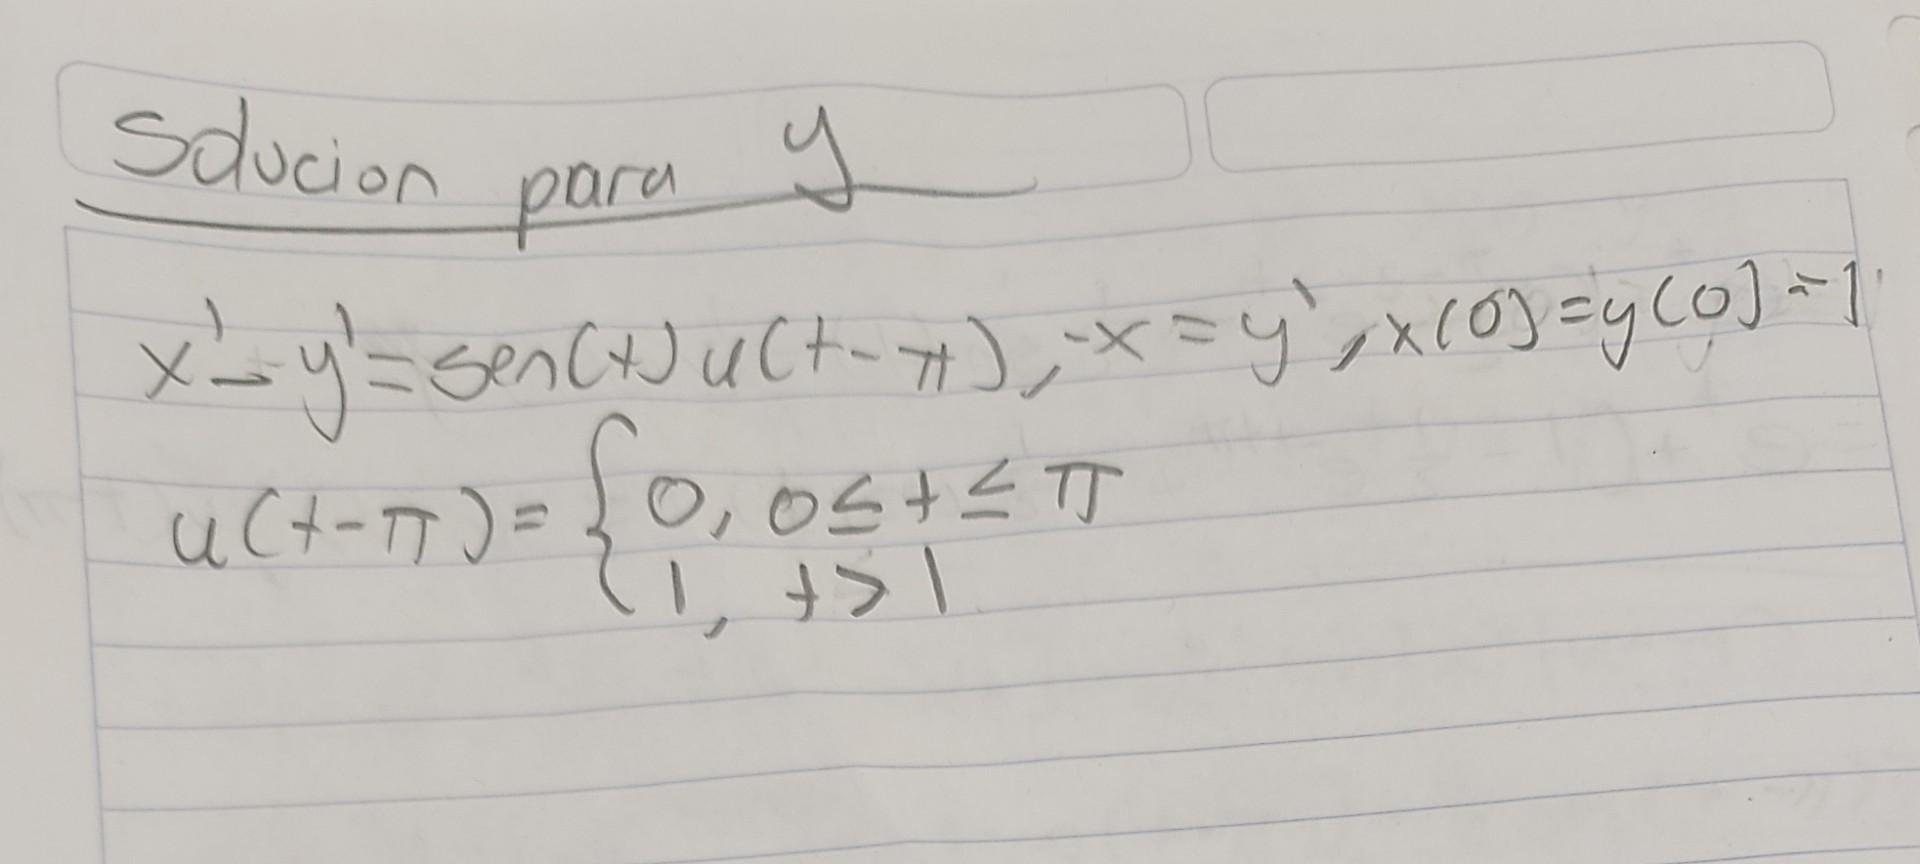 Solucion para y
x'-y'=sen(t)u(t-π), -x=y', x(0)=y(0)=1
u(t-π)={0, 0≤t≤π
1, t>1